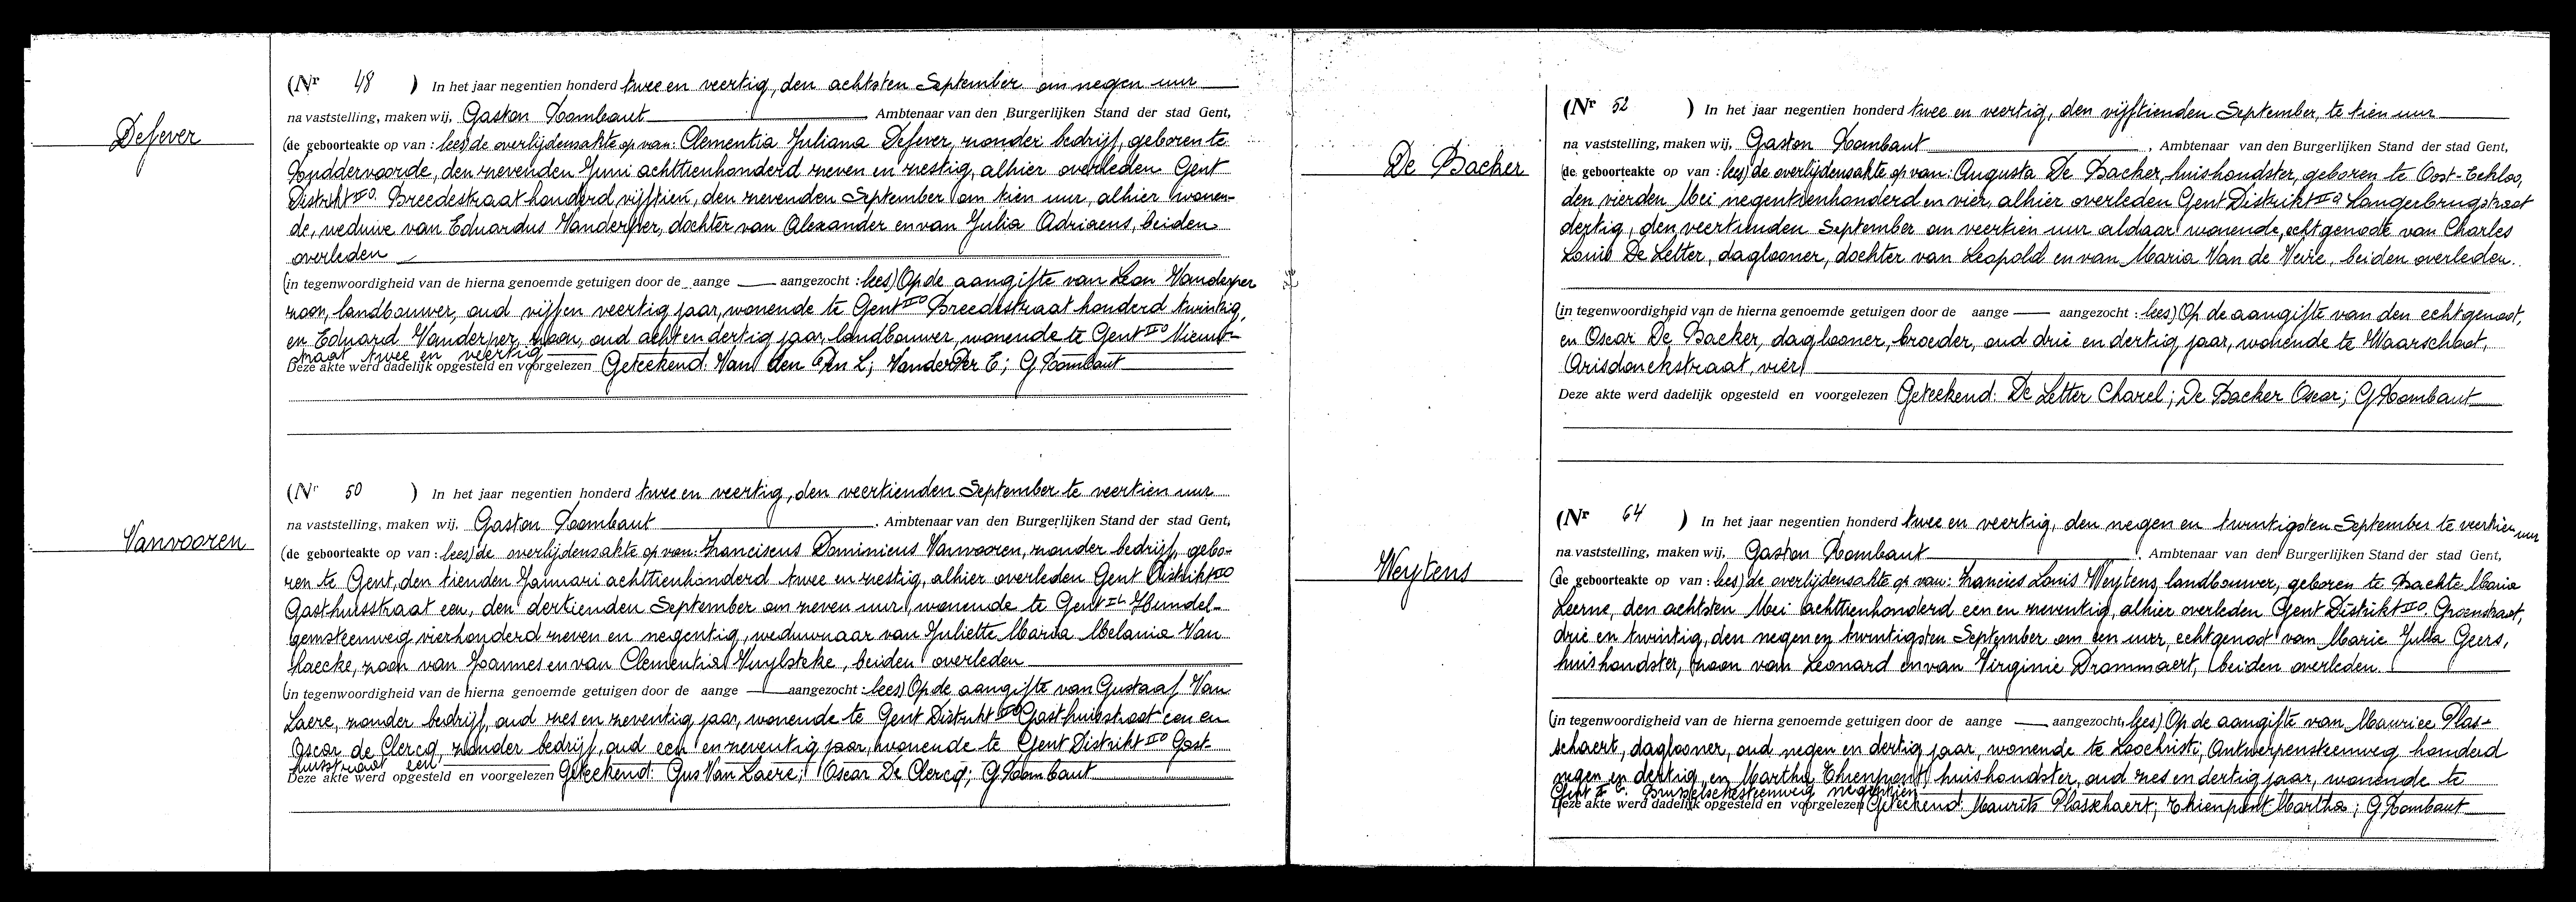 Defever
(Nr 48 ) In het jaar negentien honderd twee en veertig, den achtsten September om negen uur
na vaststelling, maken wij, Gaston Rombaut Ambtenaar van den Burgerlijken Stand der stad Gent,
(de geboorteakte op van : lees) de overlijdensakte op van: Clementia Juliana Defever, zonder bedrijf, geboren te
Ruddervoorde, den zevenden Juni achttienhonderd zeven en zestig, alhier overleden Gent
Distrikt IIO. Breedestraat honderd vijftien, den zevenden September om tien uur, alhier wonen-
de, weduwe van Eduardus Vanderper, dochter van Alexander en van Julia Adriaens, beiden
overleden
(in tegenwoordigheid van de hierna genoemde getuigen door de aange aangezocht : lees) Op de aangifte van Leon Vanderper
zoon, landbouwer, oud vijf en veertig jaar, wonende te Gent IIO Breedestraat honderd twintig,
en Eduard Vanderper, zoon, oud acht en dertig jaar, landbouwer, wonende te Gent IIO Nieuw-
straat twee en veertig
Deze akte werd dadelijk opgesteld en voorgelezen Geteekend: Van den L; VanderPer E; G Rombaut
Vanvooren
(Nr 50 ) In het jaar negentien honderd twee en veertig, den veertienden September te veertien uur
na vaststelling, maken wij, Gaston Rombaut , Ambtenaar van den Burgerlijken Stand der stad Gent,
(de geboorteakte op van : lees) de overlijdensakte op van: Franciscus Dominicus Vanvooren, zonder bedrijf, gebo-
ren te Gent, den tienden Januari achttienhonderd twee en zestig, alhier overleden Gent Distrikt IIO
Gasthuisstraat een, den dertienden September om zeven uur, wonende te Gent Hundel-
gemsteenweg vierhonderd zeven en negentig, weduwnaar van Juliette Maria Melania Van
Haecke, zoon van Joannes en van Clementia Vuylsteke, beiden overleden
(in tegenwoordigheid van de hierna genoemde getuigen door de aange aangezocht : lees) Op de aangifte van Gustaaf Van
Laere, zonder bedrijf, oud zes en zeventig jaar, wonende te Gent Distrikt IIO Gasthuisstraat een en
Oscar de Clercq, zonder bedrijf, oud een en zeventig jaar, wonende te Gent Distrikt IIO Gast-
huisstraat een
Deze akte werd opgesteld en voorgelezen Geteekend: Gus Van Laere; Oscar De Clercq; G Rombaut
De Backer
(Nr 52 ) In het jaar negentien honderd twee en veertig, den vijftienden September, te tien uur
na vaststelling, maken wij, Gaston Rombaut , Ambtenaar van den Burgerlijken Stand der stad Gent,
(de geboorteakte op van : lees) de overlijdensakte op van: Augusta De Backer, huishoudster, geboren te Oost-Eekloo,
den vierden Mei negentienhonderd en vier, alhier overleden Gent Distrikt IIO Langerbrugstraat
dertig, den veertienden September om veertien uur aldaar wonende, echtgenote van Charles
Louis De Letter, daglooner, dochter van Leopold en van Maria Van de Veire, beiden overleden.
(in tegenwoordigheid van de hierna genoemde getuigen door de aange aangezocht : lees) Op de aangifte van den echtgenoot,
en Oscar De Backer, daglooner, broeder, oud drie en dertig jaar, wonende te Waarschoot,
Arisdonckstraat, vier
Deze akte werd dadelijk opgesteld en voorgelezen Geteekend: De Letter Charel; De Backer Oscar; G Rombaut
Weytens
(Nr 64 ) In het jaar negentien honderd twee en veertig, den negen en twintigsten September te veertien uur
na vaststelling, maken wij, Gaston Rombaut , Ambtenaar van den Burgerlijken Stand der stad Gent,
(de geboorteakte op van : lees) de overlijdensakte op van: Francies Louis Weytens, landbouwer, geboren te Bachte Maria
Leerne, den achtsten Mei achttienhonderd een en zeventig, alhier overleden Gent Distrikt IIO. Groenstraat,
drie en twintig, den negen en twintigsten September om een uur, echtgenoot van Marie Julia Geers,
huishoudster, zoon van Leonard en van Virginie Drommaert, beiden overleden.
(in tegenwoordigheid van de hierna genoemde getuigen door de aange aangezocht, lees) Op de aangifte van Maurice Plas-
schaert, daglooner, oud negen en dertig jaar, wonende te Loochristi, Antwerpensteenweg honderd
negen en dertig, en Martha Thienpont, huishoudster, oud zes en dertig jaar, wonende te
Gent Brusselschesteenweg negentien
Deze akte werd dadelijk opgesteld en voorgelezen Geteekend: Maurits Plasschaert; Thienpont Martha; G Rombaut